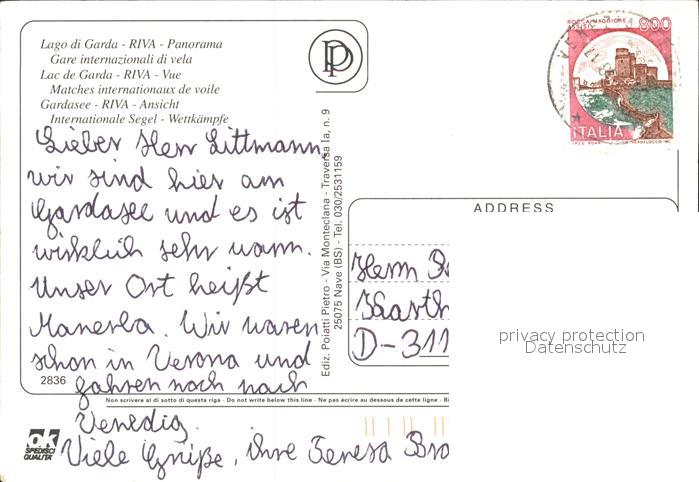 Lago di Garda - RIVA - Panorama
Gare internazionali di vela
Lac de Garda - RIVA - Vue
Matches internationaux de voile
Gardasee - RIVA - Ansicht
Internationale Segel - Wettkämpfe
Lieber Herr Littmann,
wir sind hier am
Gardasee und es ist
wirklich sehr warm.
Unser Ort heißt
Manerba. Wir waren
schon in Verona und
fahren noch nach
Venedig.
Viele Grüße, ihre Teresa Bro
2836
Ediz. Poiatti Pietro - Via Monteclana - Traversa Ia, n. 9
25075 Nave (BS) - Tel. 030/2531159
PP
ROCCA MAGGIORE
ASSISI
800
ITALIA
ADDRESS
Herrn
Karth
D-311
privacy protection
Datenschutz
Non scrivere al di sotto di questa riga - Do not write below this line - Ne pas écrire au dessous de cette ligne -
ok
SPEDISCI
QUALITA'